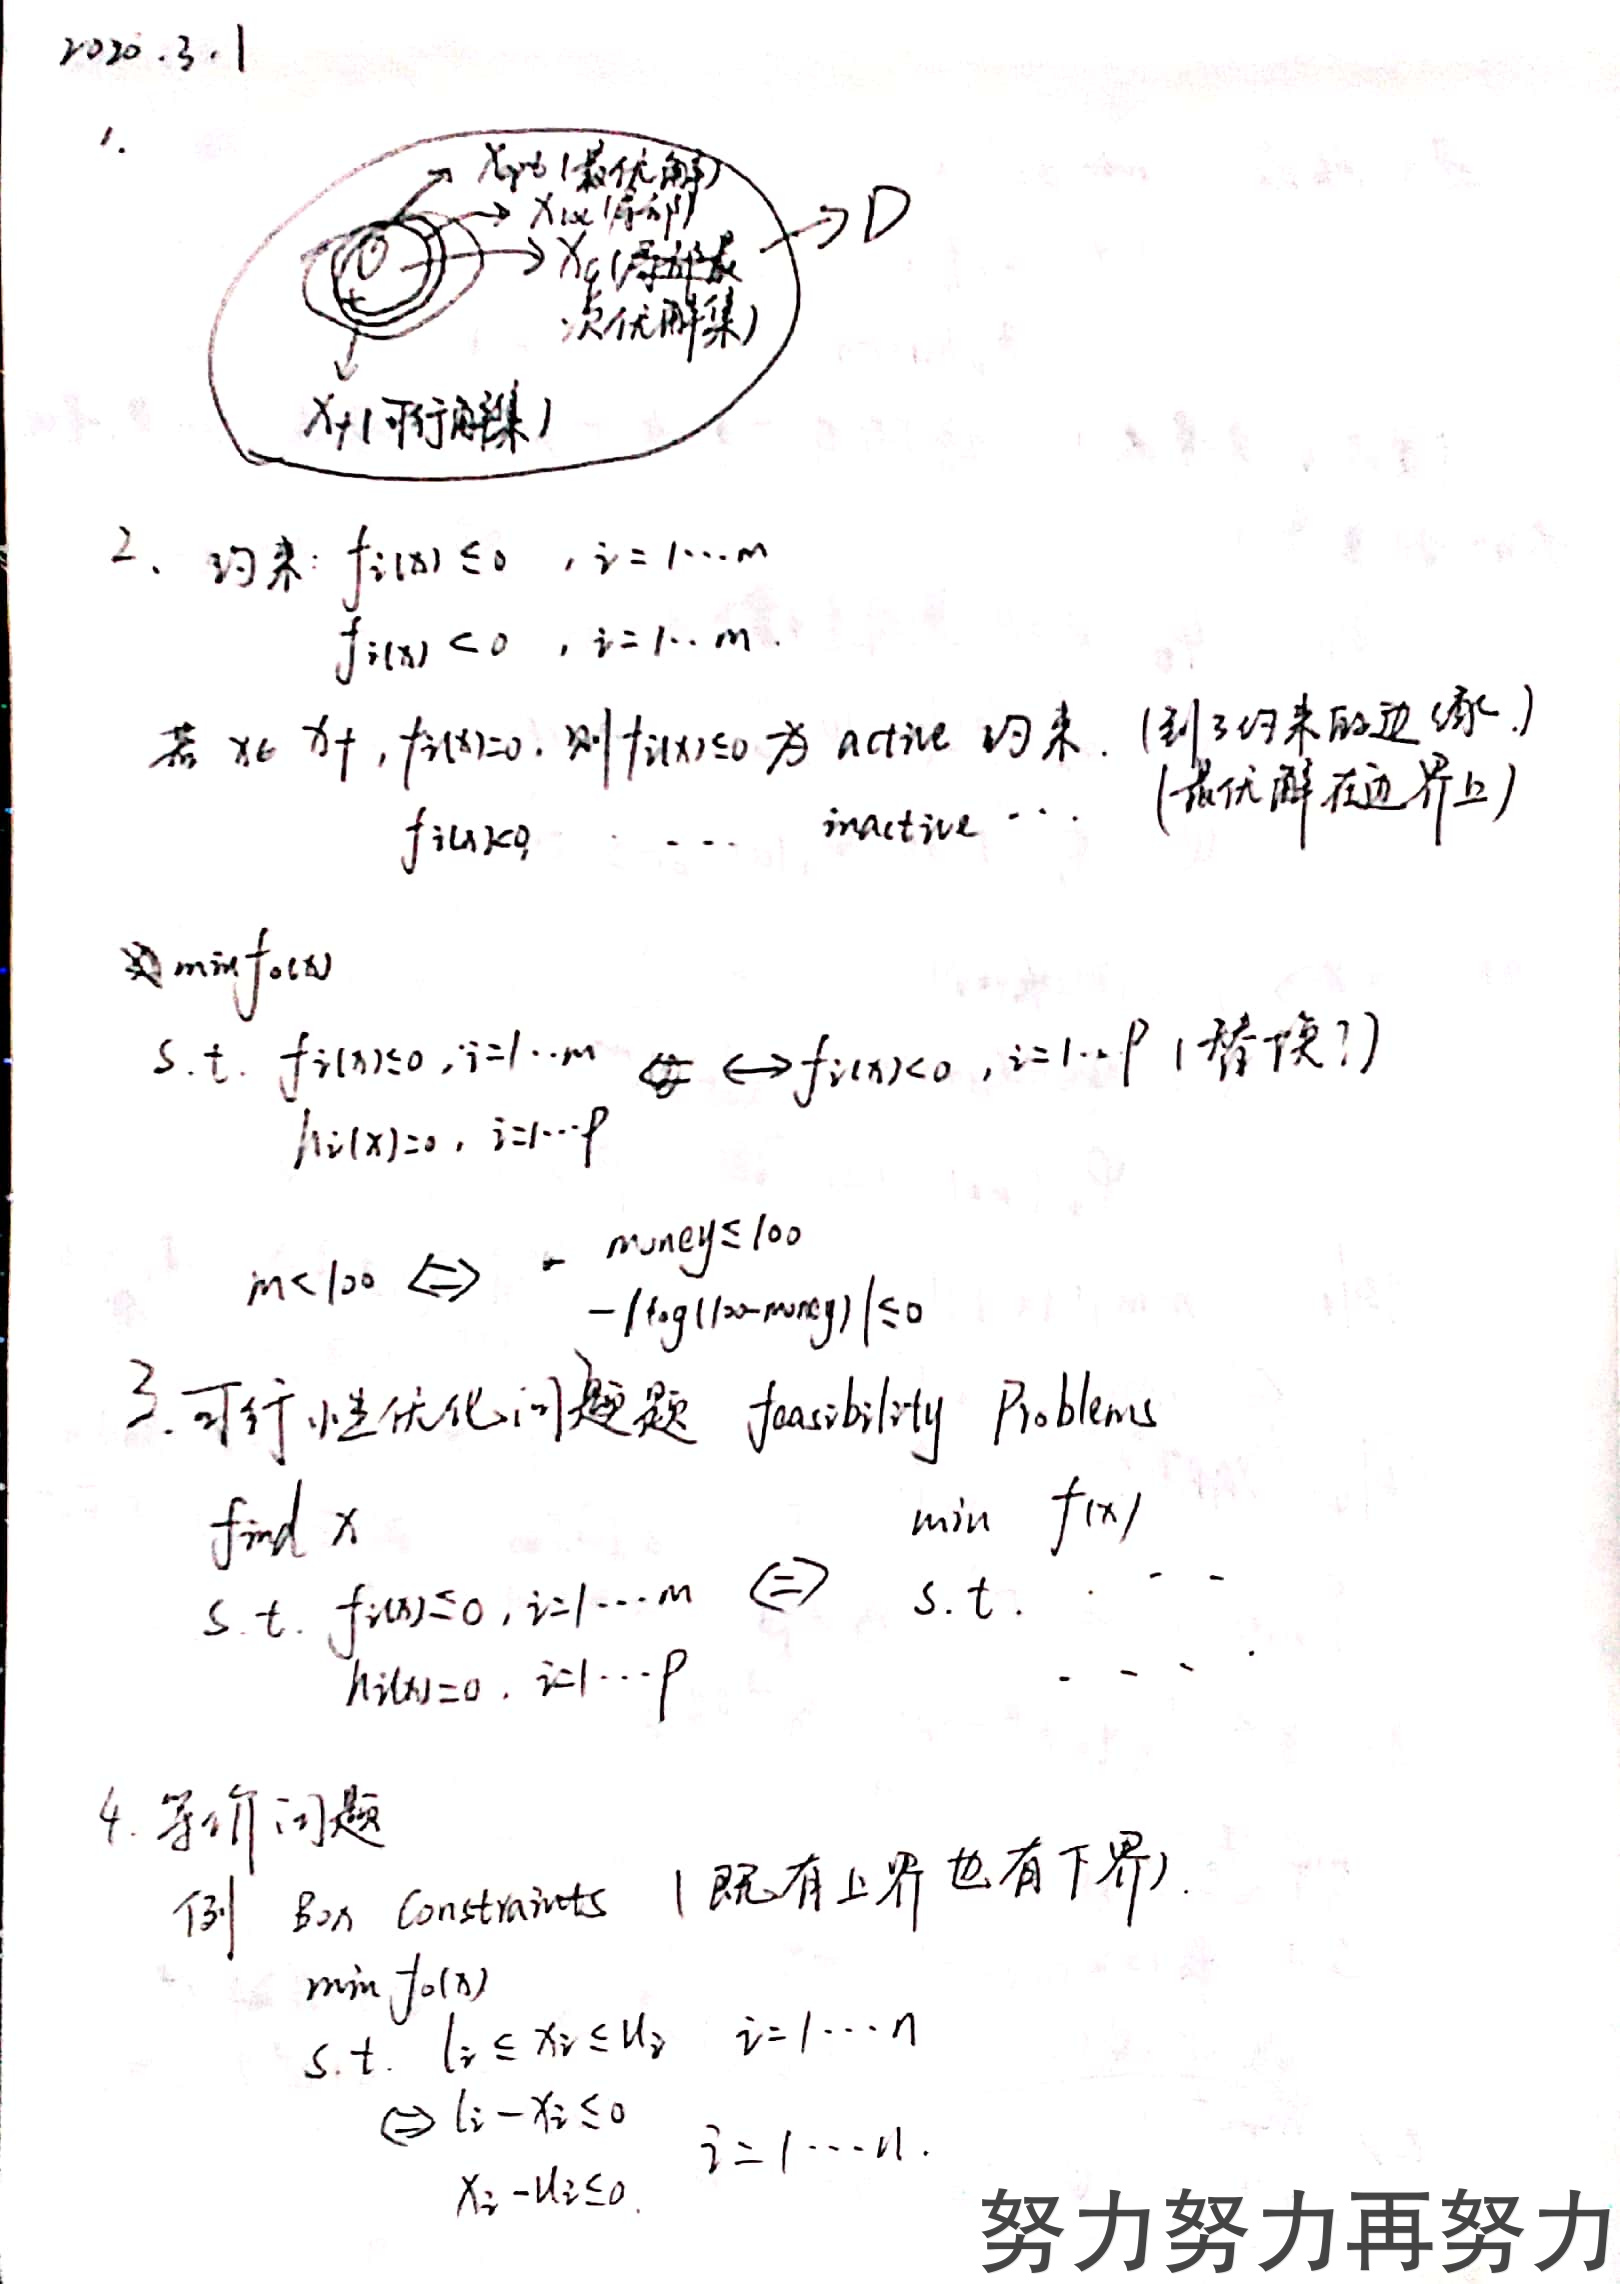 2020.3.1
1.
Xopt(最优解)
Xloc(局部)
→D
Xε(
次优解集)
Xf(可行解集)
2、约束: fi(x)≤0 , i=1…m
fi(x)<0 , i=1…m.
若 x∈Xf , fi(x)=0. 则fi(x)≤0为 active 约束. (到了约束的边缘.)
(最优解在边界上)
fi(x)<0, … … inactive …
min f0(x)
s.t. fi(x)≤0, i=1…m ↔ fi(x)<0, i=1…p (替换?)
hi(x)=0, i=1…p
m<100 ⇔ money≤100
-|log(100-money)|≤0
3.可行性优化问题题 feasibility Problems
find x
s.t. fi(x)≤0, i=1…m
hi(x)=0, i=1…p
⇔
min f(x)
s.t. . - -
- - - .
4.等价问题
例 Box Constraints (既有上界也有下界).
min f0(x)
s.t. li≤xi≤ui i=1…n
⇔ li-xi≤0
i=1…n.
xi-ui≤0.
努力努力再努力